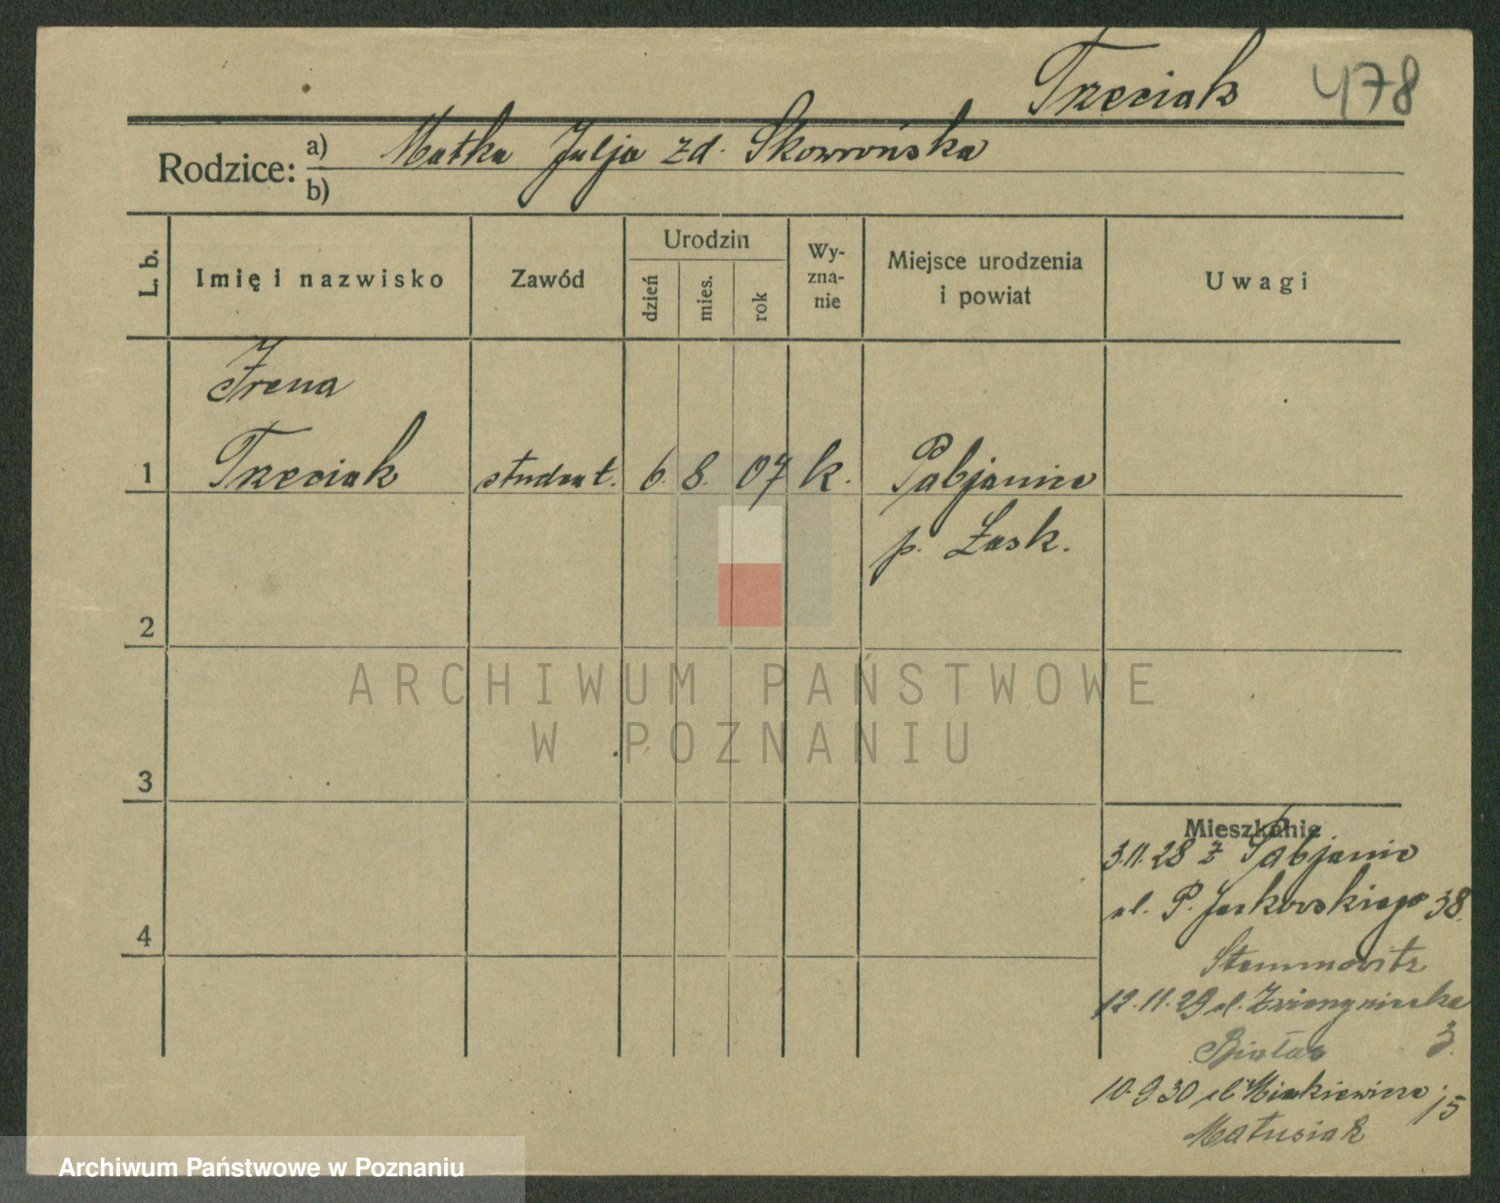 Trzeciak 478
Rodzice: a) Matka Julja zd. Skowrońska
b)
L. b.
Imię i nazwisko
Zawód
Urodzin
dzień
mies.
rok
Wy-
zna-
nie
Miejsce urodzenia
i powiat
Uwagi
Irena
1 Trzeciak student. 6. 8. 07 k. Pabjanice
p. Łask.
2
3
4
ARCHIWUM PAŃSTWOWE
W POZNANIU
Mieszkanie
3.11.28 z Pabjanic
ul. P. Jackowskiego 38.
12.11.29 ul. Zwierzyniecka
3.
Białas
10.9.30 ul. Mickiewicza 15
Matusiak
Archiwum Państwowe w Poznaniu